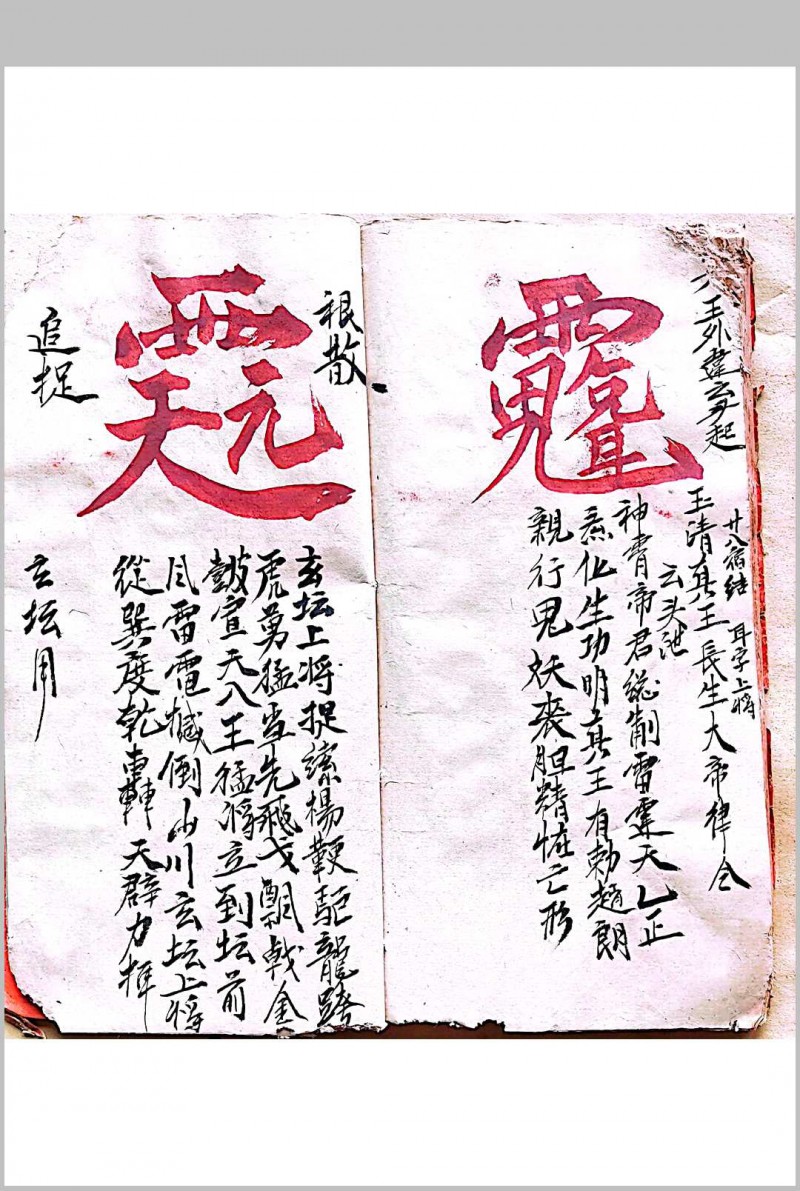 玉清真王長生大帝律令
廿八宿結
耳字上將
云头泄
神霄帝君総制雷霆天乙正
炁化生功明真王有勅趙朗
親行鬼妖喪胆精怪亡形
根散
玄坛上将捉縤楊鞕駈龍跨
虎勇猛当先飛戈飄戟金
皷宣天八王猛将立到坛前
风雷電撼倒山川玄坛上将
從巽度乾轟天辟力揮
追捉
玄坛用